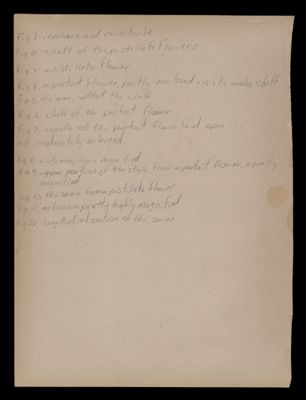 Fig. 1. involucre and receptacle
Fig. 2. chaff of the pistillate flowers
Fig. 3. a pistillate flower
Fig. 4. a perfect flower, partly enclosed in its woody chaff
Fig. 5. the same, without the chaff
Fig. 6. chaff of the perfect flower
Fig. 7. corolla of the perfect flower laid open
all moderately enlarged
Fig. 8. a stamen, more magnified
Fig. 9. upper portion of the style from a perfect flower, equally
magnified
Fig. 10. the same from a pistillate flower
Fig. 11. achenium pretty highly magnified
Fig. 12. longitudinal section of the same